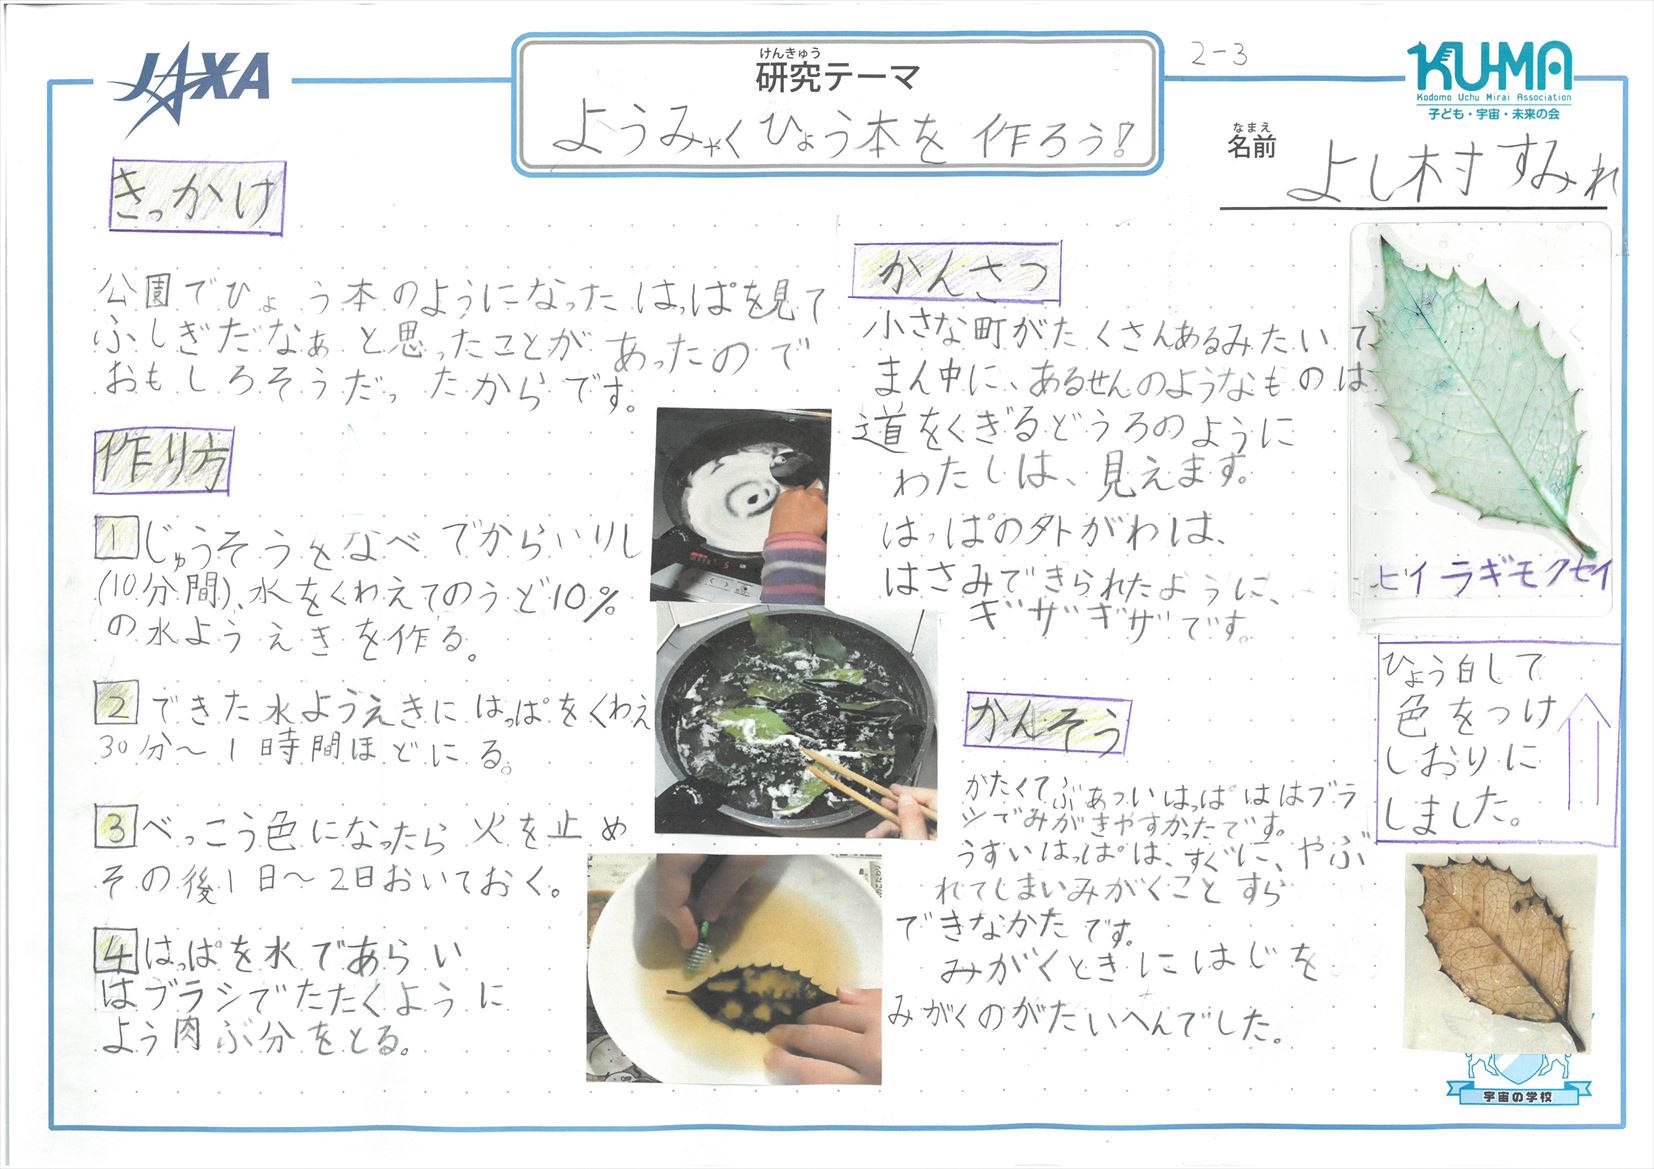 JAXA
けんきゅう
研究テーマ
ようみゃくひょう本を作ろう!
2-3
KU-MA
Kodomo Uchu Mirai Association
子ども・宇宙・未来の会
なまえ
名前
よし村すみれ
きっかけ
公園でひょう本のようになったはっぱを見て
ふしぎだなぁと思ったことがあったので
おもしろそうだったからです。
作り方
1 じゅうそうをなべでからいりし
(10分間)、水をくわえてのうど10%
の水ようえきを作る。
2 できた水ようえきにはっぱをくわえ
30分〜1時間ほどにる。
3 べっこう色になったら火を止め
その後1日〜2日おいておく。
4 はっぱを水であらい
はブラシでたたくように
よう肉ぶ分をとる。
かんさつ
小さな町がたくさんあるみたいで
まん中に、あるせんのようなものは
道をくぎるどうろのように
わたしは、見えます。
はっぱの外がわは、
はさみできられたように、
ギザギザです。
かんそう
かたくてぶあついはっぱははブラ
シでみがきやすかったです。
うすいはっぱは、すぐに、やぶ
れてしまいみがくことすら
できなかたです。
みがくときにはじを
みがくのがたいへんでした。
ヒイラギモクセイ
ひょう白して
色をつけ
しおりに
しました。
宇宙の学校